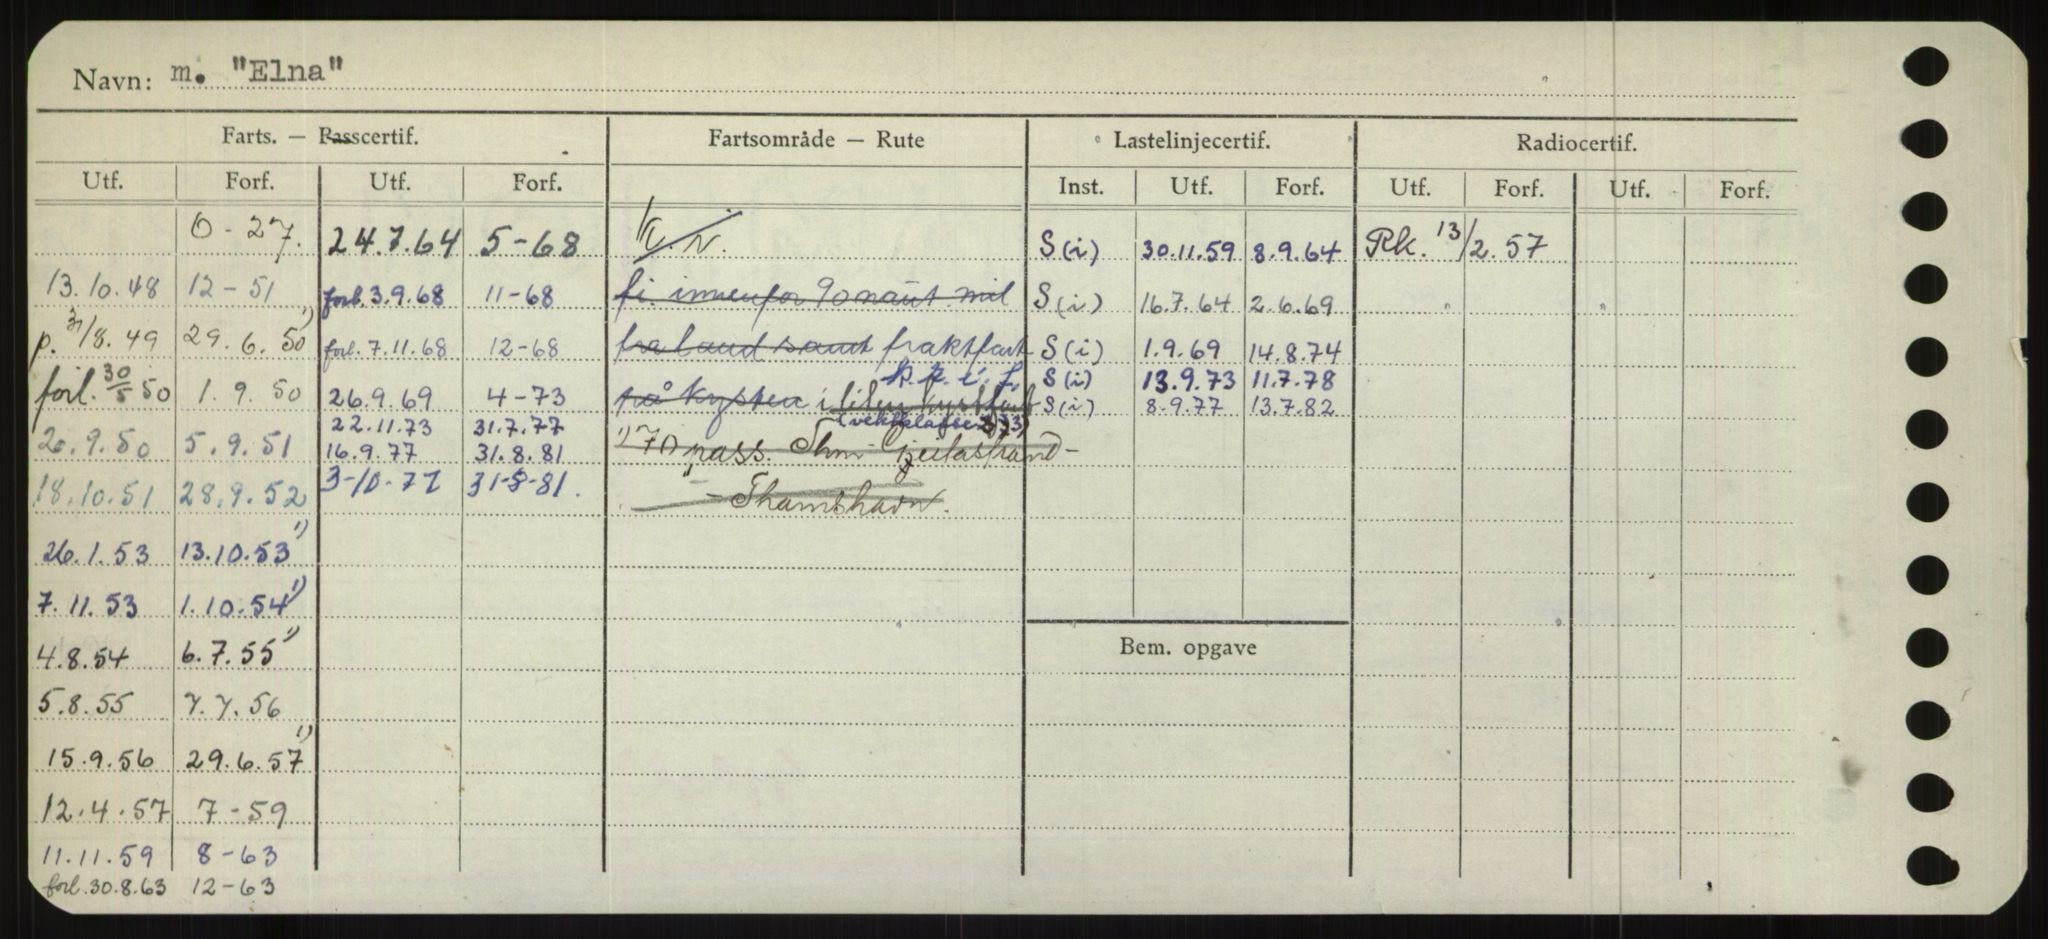 Navn: m. "Elna"
Farts. — Passcertif. Fartsområde — Rute Lastelinjecertif. Radiocertif.
Utf. Forf. Utf. Forf. Inst. Utf. Forf. Utf. Forf. Utf. Forf.
0-27. 24.7.64 5-68 S(i) 30.11.59 8.9.64 Rk. 13/2.57
13.10.48 12-51 forl. 3.9.68 11-68 fi. innenfor 90 naut mil S(i) 16.7.64 2.6.69
p. 31/8.49 29.6.50 1) forl. 7.11.68 12-68 fra land samt fraktfart S(i) 1.9.69 14.8.74
S(i) 13.9.73 11.7.78
forl. 30/5 50 1.9.50 26.9.69 4-73 på kysten i liten kystfart S(i) 8.9.77 13.7.82
22.11.73 31.7.77
20.9.50 5.9.51 16.9.77 31.8.81 1) 70 pass. Thm - Geilastrand -
18.10.51 28.9.52 3-10-77 31-8-81.
- Thamshavn.
26.1.53 13.10.53 1)
7.11.53 1.10.54 1)
4.8.54 6.7.55 1)
Bem. opgave
5.8.55 7.7.56
15.9.56 29.6.57 1)
12.4.57 7-59
11.11.59 8-63
forl. 30.8.63 12-63